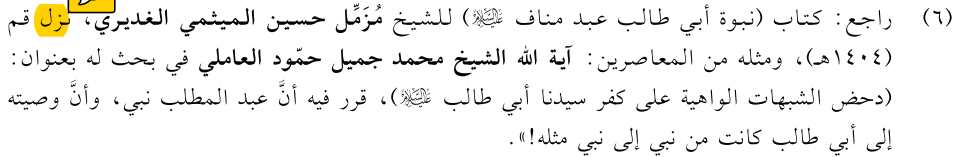 (٦) راجع: كتاب (نبوة أبي طالب عبد مناف عليه السلام) للشيخ مُزَمِّل حسين الميثمي الغديري، نزل قم
(١٤٠٤هـ)، ومثله من المعاصرين: آية الله الشيخ محمد جميل حمّود العاملي في بحث له بعنوان:
(دحض الشبهات الواهية على كفر سيدنا أبي طالب عليه السلام)، قرر فيه أنَّ عبد المطلب نبي، وأنَّ وصيته
إلى أبي طالب كانت من نبي إلى نبي مثله!».